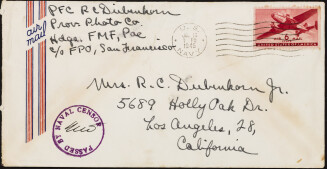 PFC R C Diebenkorn
Prov. Photo Co.
Hdqs. FMF, Pac.
c/o FPO, San Francisco
air mail
U.S.
NAVY
6¢
UNITED STATES OF AMERICA
Mrs. R. C. Diebenkorn Jr.
5659 Holly Oak Dr.
Los Angeles, 28,
California
PASSED BY NAVAL CENSOR